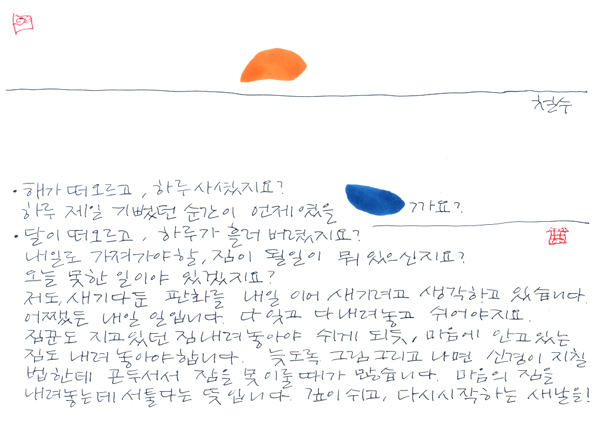 철수
· 해가 떠오르고, 하루 사셨지요?
하루 제일 기뻤던 순간이 언제였을까요?
· 달이 떠오르고, 하루가 흘러 버렸지요?
내일로 가져가야할, 짐이 될일이 뭐 있으신지요?
오늘 못한 일이야 있겠지요?
저도, 새기다둔 판화를 내일 이어 새기려고 생각하고 있습니다.
어쨌든 내일 일입니다. 다 잊고 다 내려놓고 쉬어야지요.
짐꾼도 지고있던 짐 내려놓아야 쉬게 되듯, 마음에 안고있는
짐도 내려 놓아야합니다. 늦도록 그림그리고 나면 신경이 지칠
법한데 곤두서서 잠을 못 이룰때가 많습니다. 마음의 짐을
내려놓는데 서툴다는 뜻입니다. 깊이 쉬고, 다시시작하는 새날을!